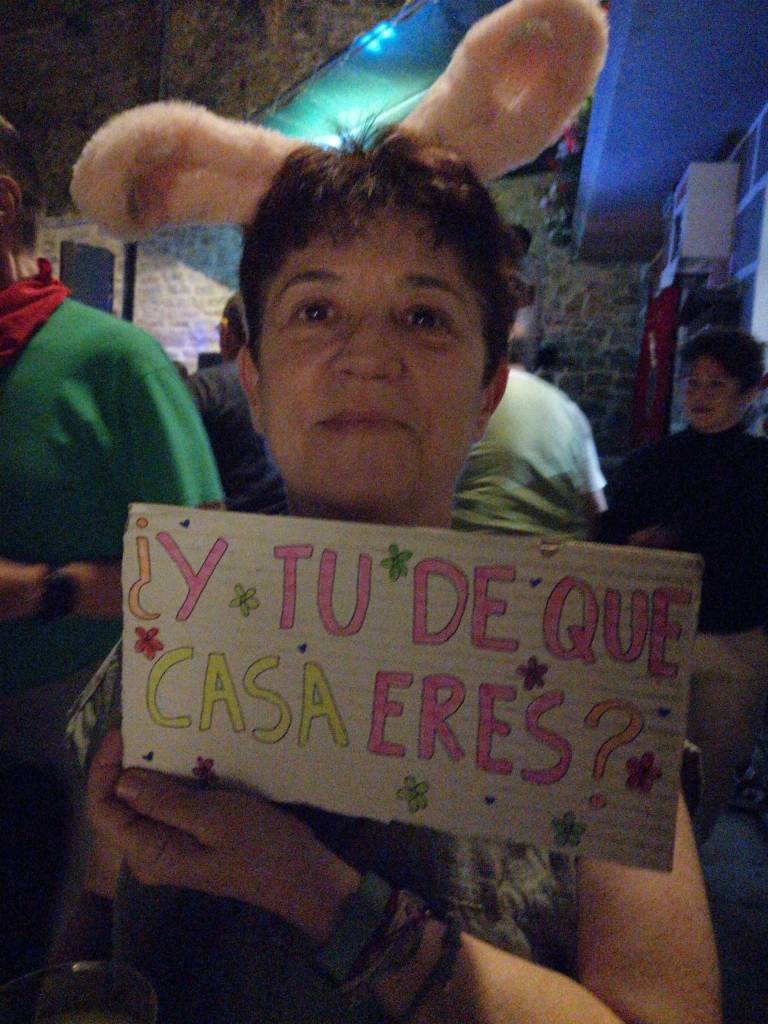 ¿Y TU DE QUE
CASA ERES?